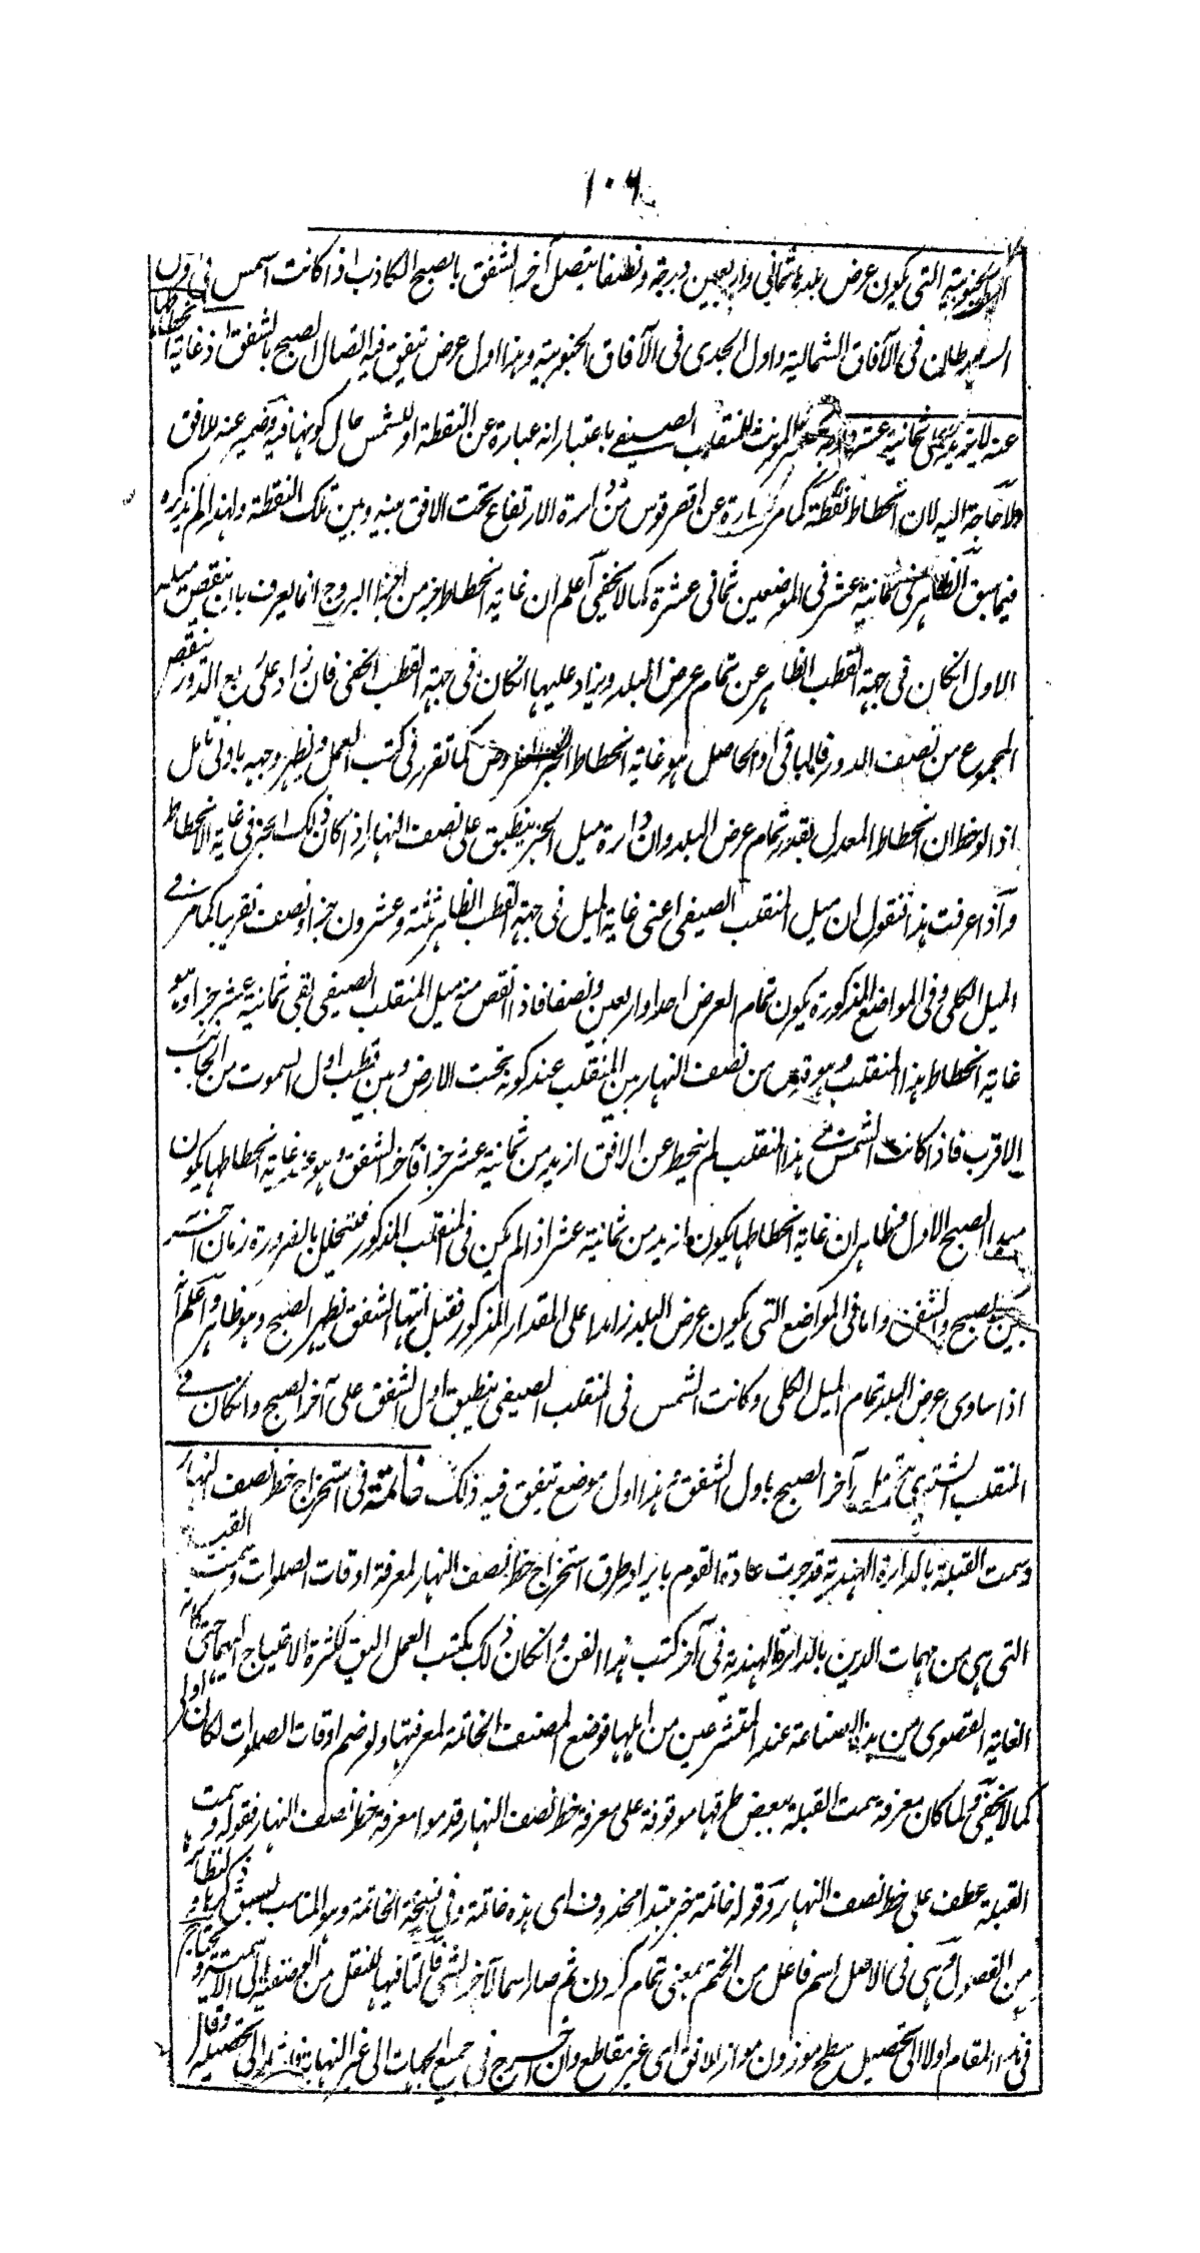 ١٠٦
الجنوبية التي يكون عرض بلده ثماني واربعين درجة ونصفا يتصل آخر الشفق بالصبح الكاذب اذا كانت الشمس في اول
السرطان في الآفاق الشمالية واول الجدى في الآفاق الجنوبية وهذا اول عرض تتفق فيه اتصال الصبح بالشفق اذ غاية انحطاطها
عنه لا يزيد على ثمانية عشر للمنقلب الصيفي باعتبار انه عبارة عن النقطة او للشمس حال كونها فيه وضمير عنه للافق
ولا حاجة اليه لان انحطاط نقطة كما مر عبارة عن اقصر قوس من دائرة الارتفاع تحت الافق بينه وبين تلك النقطة ولهذا لم يذكره
فيما سبق الظاهر في ثمانية عشر في الموضعين ثماني عشرة كما لا يخفى اعلم ان غاية انحطاط جزء من اجزاء البروج انما يعرف بان ينقص ميله
الاول انكان في جهة القطب الظاهر عن تمام عرض البلد ويزاد عليها انكان في جهة القطب الخفي فان زاد على ربع الدور ينقص
المجموع من نصف الدور فالباقي او الحاصل هو غاية انحطاط الجزء المفروض كما تقرر في كتب العمل ويظهر وجهه بادنى تامل
اذ الوحظ ان انحطاط المعدل بقدر تمام عرض البلد وان دائرة ميل الجزء ينطبق على نصف النهار اذا كان ذلك الجزء في غاية الانحطاط
واذا عرفت هذا فنقول ان ميل المنقلب الصيفي اعنى غاية الميل في جهة القطب الظاهر ثلثة وعشرون جزءا ونصف تقريبا كما مر في
الميل الكلي وفي المواضع المذكورة يكون تمام العرض احدا واربعين ونصفا فاذا نقص منه ميل المنقلب الصيفي بقي ثمانية عشر جزءا وهو
غاية انحطاط هذا المنقلب وهو قوس من نصف النهار بين المنقلب عند كونه تحت الارض وبين قطب اول السموت من الجانب
الاقرب فاذا كانت الشمس في هذا المنقلب لم ينحط عن الافق ازيد من ثمانية عشر جزءا فآخر الشفق وهو عند غاية انحطاطها يكون
مبدا الصبح الاول فظاهر ان غاية انحطاطها يكون ازيد من ثمانية عشر اذا لم يكن في المنقلب المذكور فيتخلل بالضرورة زمان آخر
بين الصبح والشفق واما في المواضع التي يكون عرض البلد زائدا على المقدار المذكور فقبل انتهاء الشفق يظهر الصبح وهو ظاهر واعلم انه
اذا ساوى عرض البلد تمام الميل الكلي وكانت الشمس في المنقلب الصيفي ينطبق اول الشفق على آخر الصبح وانكان في
المنقلب الشتوي يتصل آخر الصبح باول الشفق وهذا اول موضع تتفق فيه ذلك خاتمة في استخراج خط نصف النهار
وسمت القبلة بالدائرة الهندية قد جرت عادة القوم بايراد طرق استخراج خط نصف النهار لمعرفة اوقات الصلوات وسمت القبلة
التي هي من مهمات الدين بالدائرة الهندية في آخر كتب هذا الفن وانكان ذلك بكتب العمل اليق لكثرة الاحتياج اليهما حتى كانه
الغاية القصوى من هذه الصناعة عند المتشرعين من اهلها فوضع المصنف الخاتمة لمعرفتها ولو ضم اوقات الصلوات لكان اولى
كما لا يخفى ولما كان معرفة سمت القبلة ببعض طرقها موقوفة على معرفة خط نصف النهار قدموا معرفة خط نصف النهار فقوله وسمت
القبلة عطف على خط نصف النهار وقوله خاتمة خبر مبتدا محذوف اى هذه خاتمة وفي نسخة الخاتمة وهو المناسب لسبق ذكر نظائرها
من الفصول وهي في الاصل اسم فاعل من الختم بمعنى تمام كردن ثم صار اسما لآخر الشئ فالتاء فيها للنقل من الوصفية الى الاسمية ويحتاج
في هذا المقام اولا الى تحصيل سطح موزون مواز للافق اى غير مقاطع وان اخرج في جميع الجهات الى غير النهاية واشار الى تحصيله وقال